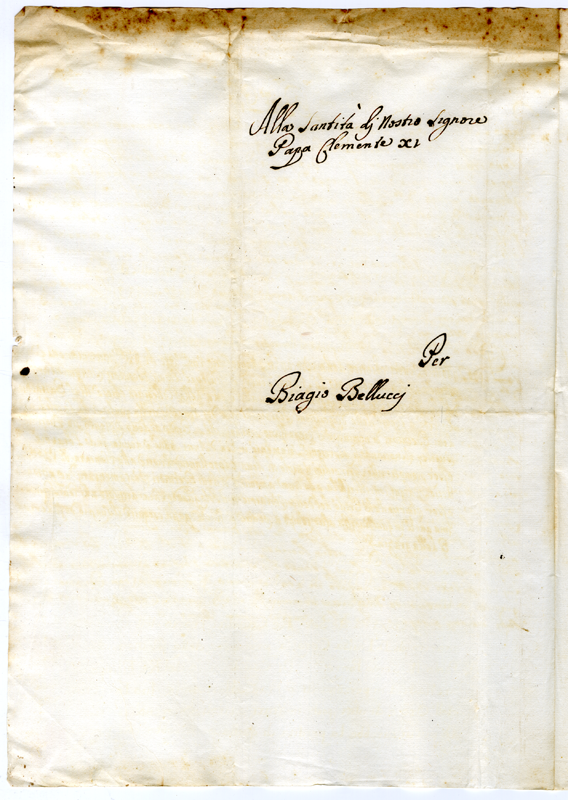 Alla Santità dj Nostro Signore
Papa Clemente XI
Per
Biagio Belluccj